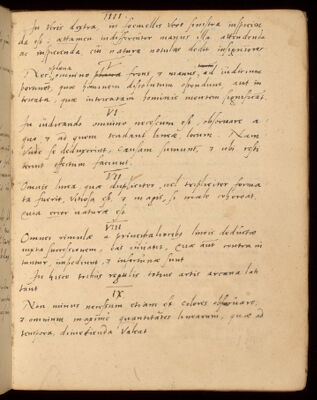 IIII
In viris dextra, in foemellis vero sinistra inspicien
da est, attamen indifferenter manus illa attendenda
ac inspicienda cui natura notulas dedit insigniores
V
Nec omnino plana frons, et manus, ad iudicium
hominis dissolutum ostendunt, aut in
tricata, quae intricatam hominis mentem significat.
VI
In iudicando omnino necessum est, observare a
quo et ad quem tendant lineae, locum. Nam
Unde se deduxerint, causam sumunt, et ubi
effectum faciunt.
VII
Omnis linea, quae dupliciter, vel tripliciter forma
ta fuerit, vitiosa est, et
error naturae est.
VIII
Omnes rimulae a principalioribus lineis deductae
iuxta successionem, las iuvant, Quae aut contra in
tuntur, impediunt, et infortunae sunt
In hisce tribus regulis totius artis arcana lati
tant
IX
Non minus necessum etiam est colores observare,
et omnium maxime quantitates linearum, quae ad
tempora, dimetienda valeat